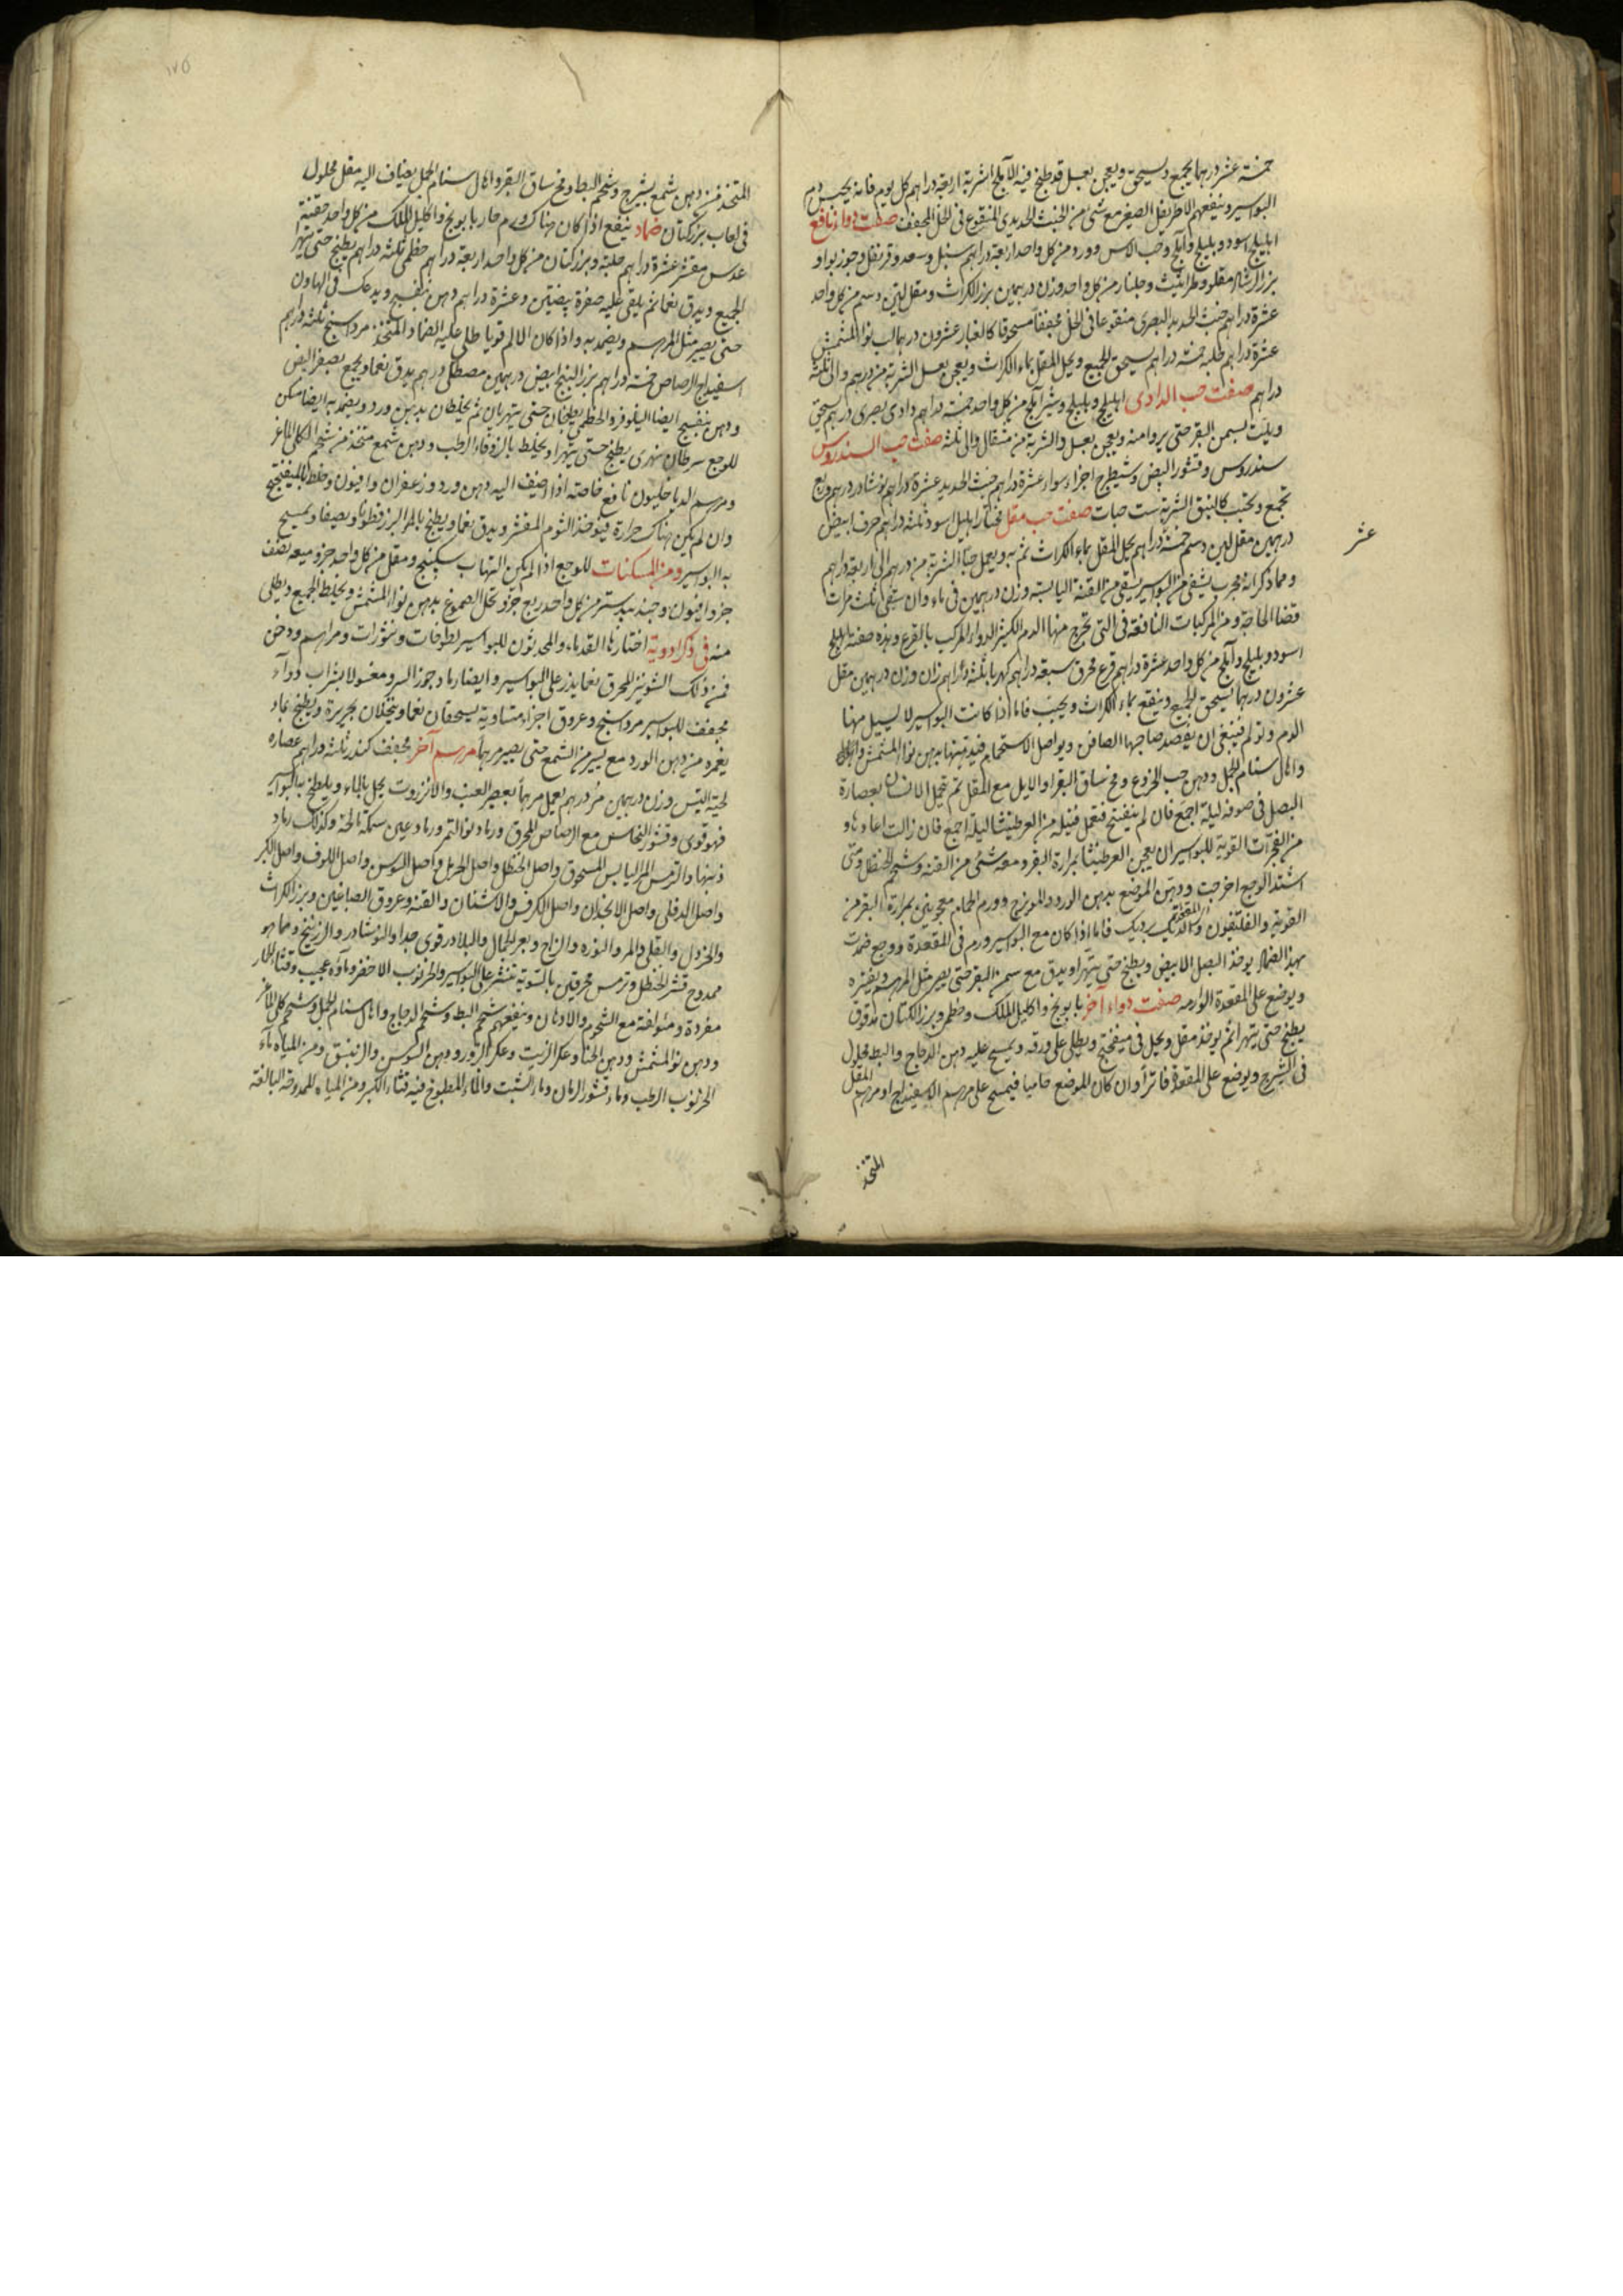 خمسة عشر درهما يجمع ويسحق ويعجن بعسل قد طبخ فيه الآملج الشربة اربعة دراهم كل يوم فانه يحبس دم
البواسير وينفعهم الاطريفل الصغير مع شئ من الخبث الحديدى المنقوع فى الخل المجفف صفت دواء نافع
اهليلج اسود وبليلج وآملج وحب الاس وورد من كل واحد اربعة دراهم سنبل وسعد وقرنفل وجوز بوا و
بزر الرشاد مقلو وطراثيث وجلنار من كل واحد وزن درهمين بزر الكراث ومقل لين دسم من كل واحد
عشرة دراهم خبث الحديد البصرى منقوعا فى الخل مجففا مسحوقا كالغبار عشرون درهما لب نوا المشمش
عشرة دراهم حلبه خمسة دراهم يسحق الجميع ويحل المقل بماء الكراث ويعجن بعسل الشربة من درهم والى ثلثة
دراهم صفت حب الدادى اهليلج وبليلج وشير آملج من كل واحد خمسة دراهم دادى بصرى درهم يسحق
ويلت بسمن البقر حتى يروا منه ويعجن بعسل والشربة من مثقال والى ثلثة صفت حب السندروس
سندروس وقشور البيض وشيطرج اجزاء سواء عشرة دراهم خبث الحديد عشرة دراهم نوشادر درهم وربع
تجمع وتحبب كالنبق الشربة ست حبات صفت حب مقل مختار اهليلج اسود ثلثة دراهم حرف ابيض
درهمين مقل لين دسم خمسة دراهم يحل المقل بماء الكراث ثم به ويعمل حبا الشربة من درهم الى اربعة دراهم
ومما ذكر انه مجرب يشفى من البواسير يسقى من القنة اليابسة وزن درهمين فى ماء وان سقى ثلث مرات
قضا الحاجة ومن المركبات النافعة فى التى تخرج منها الدم الكثير الدواء المركب بالقرع وهذه صفته اهليلج
اسود وبليلج وآملج من كل واحد عشرة دراهم قرع محرق سبعة دراهم كهربا ثلثة دراهم زان وزن درهمين مقل
عشرون درهما يسحق الجميع وينقع بماء الكراث ويحبب فاما اذا كانت البواسير لا يسيل منها
الدم وتولم فينبغى ان يفصد صاحبها الصافن ويواصل الاستحمام فيدهنها بدهن نوا المشمش
واهال سنام الجمل ودهن حب الخروع ومخ ساق البقر او الايل مع المقل ثم تحمل الانسان بعصارة
البصل فى صوفه ليلة اجمع فان لم ينفتح فتعمل فتيله من العرطنيثا ليلة اجمع فان زالت اعاد هاو
من المفجرات القوية للبواسير ان يعجن العرطنيثا بمرارة البقر ومعه شئ من القنه وشحم الحنظل ومتى
اشتد الوجع اخرجت ودهن الموضع بدهن الورد والمويزج وورم الحمام معجونين بمرارة البقر من
القوية والفلتفيون والديك برديك فاما اذا كان مع البواسير ورم فى المقعدة ووجع ضمدت
بهذا الضماد يوخذ البصل الابيض ويطبخ حتى يتهرا ويدق مع سمن البقر حتى يصير مثل المرهم ويفتره
ويوضع على المقعدة الوارمه صفت دواء آخر بابونج واكليل الملك وخطمى وبزر الكتان مدقوق
يطبخ حتى يتهرا ثم يوخذ مقل ويحل فى ميفختج ويطلى على ورقه ويمسح عليه دهن الدجاج والبط محلول
فى الشيرج ويوضع على المقعدة فاترا وان كان الموضع حاميا فيمسح على مرهم الاسفيداج او مرهم المقل
المتخذ
عشر
١٧٥
المتخذ من دهن شمع بشيرج وشحم البط ومخ ساق البقر واهال سنام الجمل يضاف اليه مقل محلول
فى لعاب بزر كتان ضماد ينفع اذا كان هناك ورم حار بابونج واكليل الملك من كل واحد حفنة
عدس مقشر عشرة دراهم حلبة وبزر كتان من كل واحد اربعة دراهم خطمى ثلثة دراهم يطبخ حتى يتهرا
الجميع ويدق نعما ثم يلقى عليه صفرة بيضتين وعشرة دراهم دهن بنفسج ويدعك فى الهاون
حتى يصير مثل المرهم ويضمد به واذا كان الالم قويا طلى عليه الضماد المتخذ مرداسنج ثلثة دراهم
اسفيداج الرصاص خمسة دراهم بزر البنج ابيض درهمين مصطكى درهم يدق نعما ويجمع بصفر البيض
ودهن بنفسج ايضا النيلوفر والخطمى يطبخان حتى يتهريان ثم يخلطان بدهن ورد ويضمد به ايضا مسكن
للوجع سرطان نهرى يطبخ حتى يتهرا ويخلط بالزوفاء الرطب ودهن شمع متخذ من شحم الكلى الماعز
ومرهم الدياخليون نافع خاصة اذا اضيف اليه دهن ورد وزعفران وافيون وخلط بالميفختج
وان لم يكن هناك حرارة فيوخذ الثوم المقشر ويدق نعما ويطبخ بالمر البزر قطونا ويصفا ويمسح
به البواسير ومن المسكنات للوجع اذا لم يكن التهاب سكبينج ومقل من كل واحد جزو ميعه نصف
جزو افيون وجندبيدستر من كل واحد ربع جزو تحل الصموغ بدهن نوا المشمش ويخلط الجميع ويطلى
منه فى ذكر ادوية اختارتها القدماء والمحدثون للبواسير لطوخات ونثورات ومراهم ودخن
فمن ذلك الشونيز المحرق نعما يذر على البواسير وايضا رماد جوز السرو مغسولا بشراب دواء
مجفف للبواسير مرداسنج وعروق اجزاء متساوية يسحقان نعما وينخلان بحريرة ويطبخ بما
يغمره من دهن الورد مع يسير من الشمع حتى يصير مرهما مرهم آخر مجفف كندر ثلثة دراهم عصاره
لحية التيس وزن درهمين مر درهم يعمل مرهما بعصير العنب والانزروت يحل بالماء ويلطخ به البواسير
فهو قوى وقشور النحاس مع الرصاص المحرق ورماد نوا التمر ورماد عين سمكة مالحة وكذلك رماد
ذنبها والترمس المر اليابس المسحوق واصل الحنظل واصل الحرمل واصل السوسن واصل اللوف واصل الكبر
واصل الدفلى واصل الانجدان واصل الكرفس والاشنان والقنه وعروق الصباغين وبزر الكراث
والخردل والقلى والمر والنوره والزاج وبعر الجمال والبلادر قوى جدا والنوشادر والزرنيخ ومما هو
ممدوح قشر الحنظل وترمس محرقين بالسوية تنثر على البواسير والخرنوب الاخضر وماؤه عجيب وقثاء الحمار
مفردة ومؤلفة مع الشحوم والادهان وينفعهم شحم البط وشحم الدجاج واهال سنام الجمل وشحم كلى الماعز
ودهن نوا المشمش ودهن الحنا وعكر الزيت وعكر البزور ودهن السوسن والزنبق ومن المياه ماء
الخرنوب الرطب وماء قشور الرمان وماء الشبت والماء المطبوخ فيه قثاء الكبر ومن المياه الممدوحة البالغة